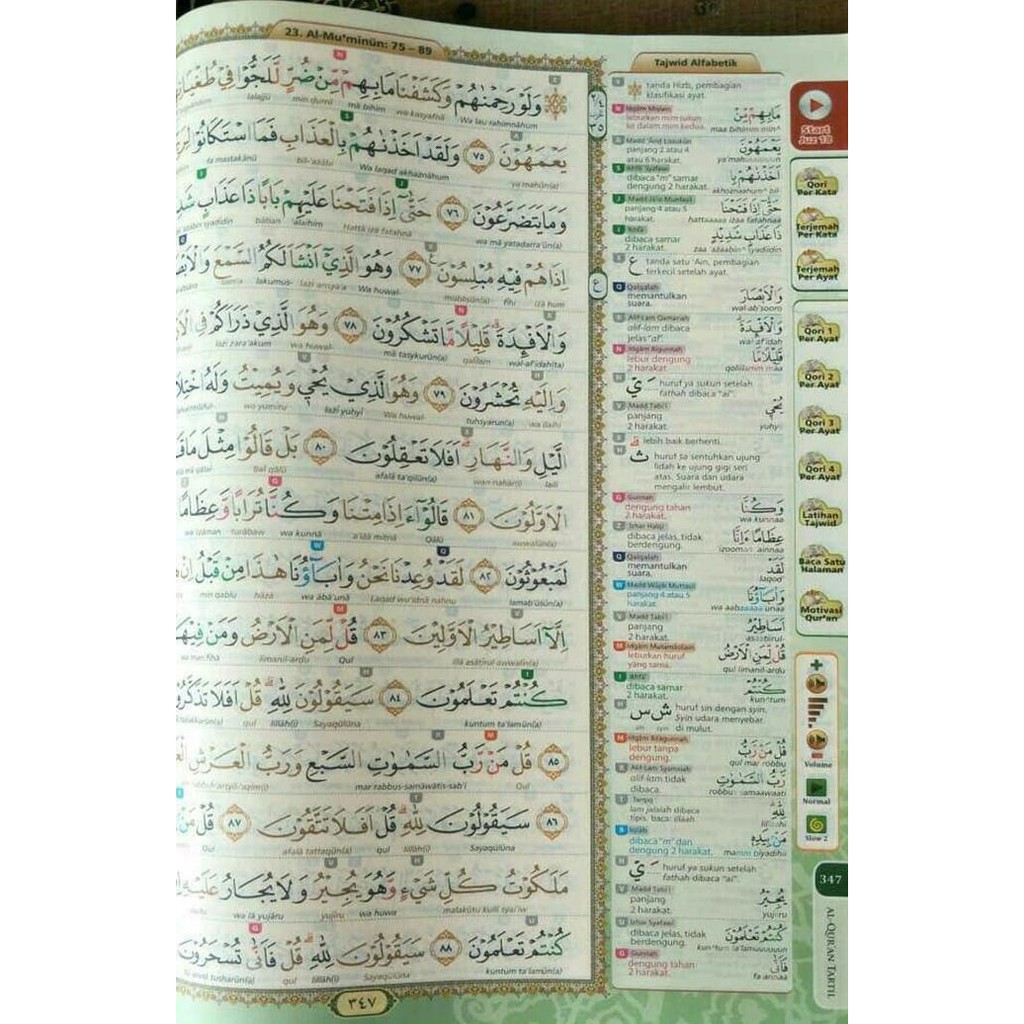 23. Al-Mu'minūn: 75 – 89
وَلَوْ رَحِمْنٰهُمْ وَكَشَفْنَا مَا بِهِمْ مِّنْ ضُرٍّ لَّلَجُّوْا فِيْ
Wa lau raḥimnāhum wa kasyafnā mā bihim min ḍurril lalajjū
يَعْمَهُوْنَ ٧٥ وَلَقَدْ اَخَذْنٰهُمْ بِالْعَذَابِ فَمَا اسْتَكَانُوْا
ya'mahūn(a) Wa laqad akhażnāhum bil-'ażābi famastakānū
وَمَا يَتَضَرَّعُوْنَ ٧٦ حَتّٰىٓ اِذَا فَتَحْنَا عَلَيْهِمْ بَابًا ذَا عَذَابٍ
wa mā yataḍarra'ūn(a) Ḥattā iżā fataḥnā 'alaihim bāban
اِذَا هُمْ فِيْهِ مُبْلِسُوْنَ ٧٧ وَهُوَ الَّذِيْٓ اَنْشَاَ لَكُمُ السَّمْعَ
iżā hum fīhi mublisūn(a) Wa huwal-lażī ansya'a lakumus-
وَالْاَفْـِٕدَةَ ۗ قَلِيْلًا مَّا تَشْكُرُوْنَ ٧٨ وَهُوَ الَّذِيْ ذَرَاَكُمْ فِى
wal-af'idah(ta) qalīlam mā tasykurūn(a) wa huwal-lażī żara'akum
وَاِلَيْهِ تُحْشَرُوْنَ ٧٩ وَهُوَ الَّذِيْ يُحْيٖ وَيُمِيْتُ وَلَهُ
wa ilaihi tuḥsyarūn(a) Wa huwal-lażī yuḥyī wa yumītu
الَّيْلِ وَالنَّهَارِ ۗ اَفَلَا تَعْقِلُوْنَ ٨٠ بَلْ قَالُوْا مِثْلَ مَا
laili wan-nahār(i) afalā ta'qilūn(a) Bal qālū
الْاَوَّلُوْنَ ٨١ قَالُوْٓا ءَاِذَا مِتْنَا وَكُنَّا تُرَابًا وَّعِظَامًا
awwalūn(a) Qālū a'iżā mitnā wa kunnā turābaw wa 'iẓāman
لَمَبْعُوْثُوْنَ ٨٢ لَقَدْ وُعِدْنَا نَحْنُ وَاٰبَاۤؤُنَا هٰذَا مِنْ قَبْلُ اِنْ
lamab'ūṡūn(a) Laqad wu'idnā naḥnu wa ābā'unā hāżā min qablu
اِلَّآ اَسَاطِيْرُ الْاَوَّلِيْنَ ٨٣ قُلْ لِّمَنِ الْاَرْضُ وَمَنْ فِيْهَا
illā asāṭīrul-awwalīn(a) Qul limanil-arḍu wa man fīhā
كُنْتُمْ تَعْلَمُوْنَ ٨٤ سَيَقُوْلُوْنَ لِلّٰهِ ۗ قُلْ اَفَلَا تَذَكَّرُوْنَ
kuntum ta'lamūn(a) Sayaqūlūna lillāh(i) qul
٨٥ قُلْ مَنْ رَّبُّ السَّمٰوٰتِ السَّبْعِ وَرَبُّ الْعَرْشِ
Qul mar rabbus-samāwātis-sab'i
٨٦ سَيَقُوْلُوْنَ لِلّٰهِ ۗ قُلْ اَفَلَا تَتَّقُوْنَ ٨٧ قُلْ مَنْ
Sayaqūlūna lillāh(i) qul afalā tattaqūn(a) Qul
مَلَكُوْتُ كُلِّ شَيْءٍ وَّهُوَ يُجِيْرُ وَلَا يُجَارُ عَلَيْهِ
malakūtu kulli syai'iw wa huwa yujīru wa lā yujāru
كُنْتُمْ تَعْلَمُوْنَ ٨٨ سَيَقُوْلُوْنَ لِلّٰهِ ۗ قُلْ فَاَنّٰى تُسْحَرُوْنَ
kuntum ta'lamūn(a) Sayaqūlūna lillāh(i) qul
٣٤٧
Tajwid Alfabetik
tanda Hizb, pembagian
klasifikasi ayat.
Idgām Mislain
leburkan mim sukun
ke dalam mim kedua.
مَا بِهِمْ مِّنْ
panjang 2 atau 4
atau 6 harakat.
يَعْمَهُوْنَ
dibaca "m" samar
dengung 2 harakat.
اَخَذْنٰهُمْ بِا
panjang 4 atau 5
harakat.
حَتّٰىٓ اِذَا فَتَحْنَا
dibaca samar
2 harakat.
ذَا عَذَابٍ شَدِيْدٍ
ع tanda satu 'Ain, pembagian
terkecil setelah ayat.
Qalqalah
memantulkan
suara.
وَالْاَبْصَارَ
alif-lam dibaca
jelas "al".
وَالْاَفْـِٕدَةَ
lebur dengung
2 harakat.
قَلِيْلًا مَّا
huruf ya sukun setelah
fathah dibaca "ai".
Madd Tabi'i
panjang
2 harakat.
يُحْيٖ
lebih baik berhenti.
ث huruf ṡa sentuhkan ujung
lidah ke ujung gigi seri
atas. Suara dan udara
mengalir lembut.
Gunnah
dengung tahan
2 harakat.
وَكُنَّا
wa kunnaa
dibaca jelas, tidak
berdengung.
عِظَامًا ءَاِنَّا
Qalqalah
memantulkan
suara.
لَقَدْ
laqod
panjang 4 atau 5
harakat.
وَاٰبَاۤؤُنَا
Madd Tabi'i
panjang
2 harakat.
اَسَاطِيْرُ
leburkan huruf
yang sama.
قُلْ لِّمَنِ الْاَرْضُ
qul limanil-ardu
dibaca samar
2 harakat.
كُنْتُمْ
ش س huruf sin dengan syin.
Syin udara menyebar
di mulut.
lebur tanpa
dengung.
قُلْ مَنْ رَّبُّ
qul mar robbu
alif-lam tidak
dibaca.
رَبُّ السَّمٰوٰتِ
lam jalalah dibaca
tipis, baca: illaah
لِلّٰهِ
dibaca "m" dan
dengung 2 harakat.
مَنْۢ بِيَدِهٖ
huruf ya sukun setelah
fathah dibaca "ai".
Madd Tabi'i
panjang
2 harakat.
يُجِيْرُ
yujiiru
dibaca jelas, tidak
berdengung.
كُنْتُمْ تَعْلَمُوْنَ
Gunnah
dengung tahan
2 harakat.
فَاَنّٰى
fa annaa
Start
Juz 18
Qori
Per Kata
Terjemah
Per Kata
Terjemah
Per Ayat
Qori 1
Per Ayat
Qori 2
Per Ayat
Qori 3
Per Ayat
Qori 4
Per Ayat
Latihan
Tajwid
Baca Satu
Halaman
Motivasi
Qur'an
+
Volume
Normal
Slow 2
347
AL-QURAN TARTIL